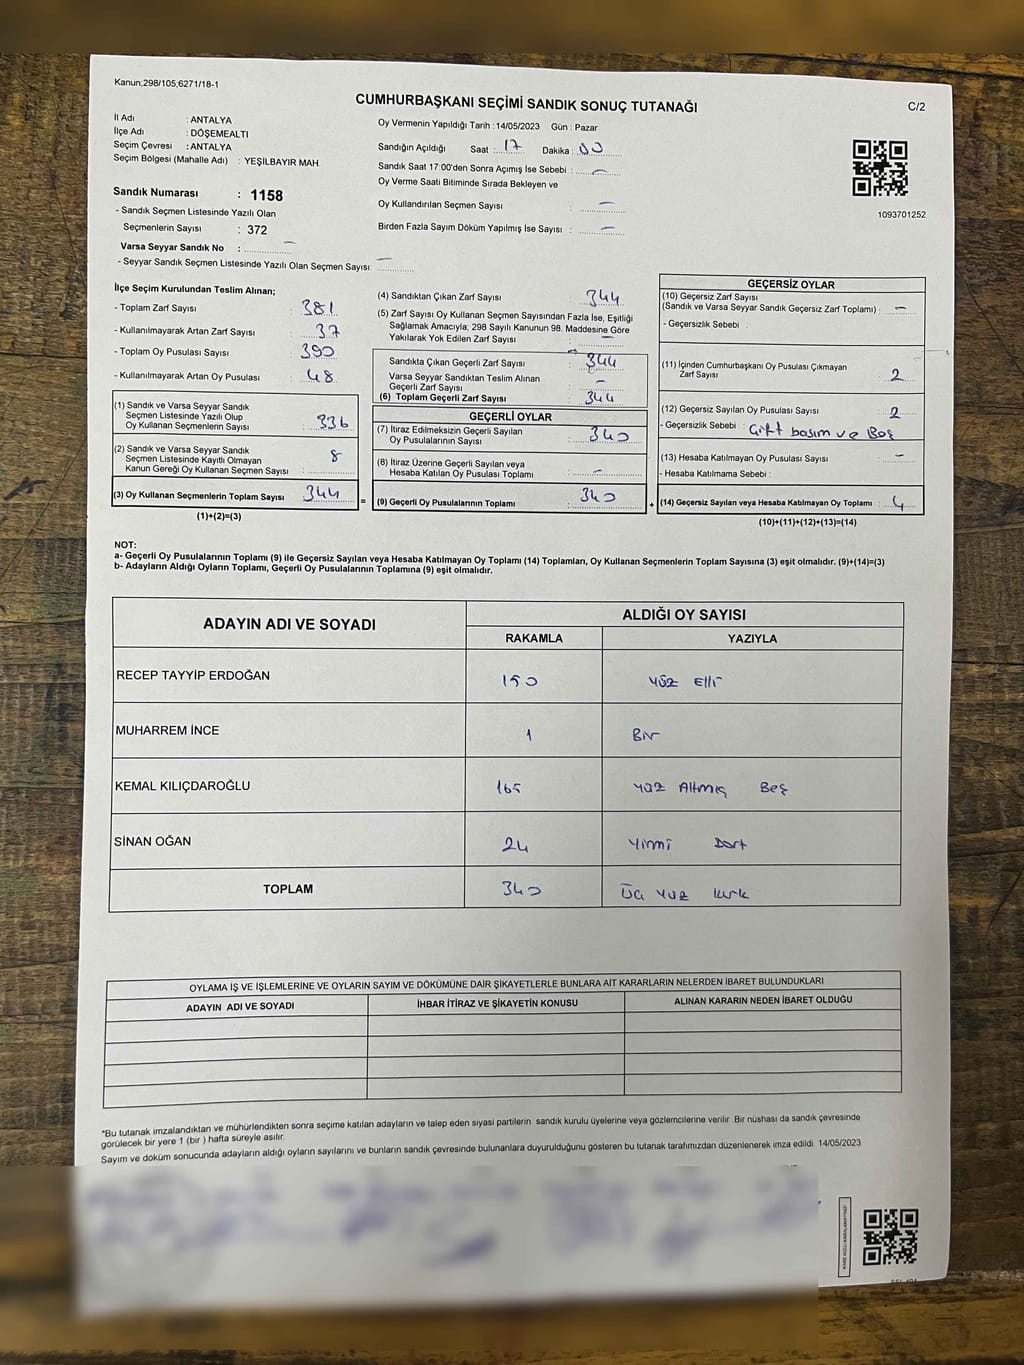 Kanun;298/105;6271/18-1
CUMHURBAŞKANI SEÇİMİ SANDIK SONUÇ TUTANAĞI
C/2
İl Adı : ANTALYA
İlçe Adı : DÖŞEMEALTI
Seçim Çevresi : ANTALYA
Seçim Bölgesi (Mahalle Adı) : YEŞİLBAYIR MAH.
Sandık Numarası : 1158
- Sandık Seçmen Listesinde Yazılı Olan
Seçmenlerin Sayısı : 372
Varsa Seyyar Sandık No : –
- Seyyar Sandık Seçmen Listesinde Yazılı Olan Seçmen Sayısı: –
Oy Vermenin Yapıldığı Tarih : 14/05/2023 Gün : Pazar
Sandığın Açıldığı Saat : 17 Dakika : 00
Sandık Saat 17:00'den Sonra Açımış İse Sebebi : –
Oy Verme Saati Bitiminde Sırada Bekleyen ve
Oy Kullandırılan Seçmen Sayısı : –
Birden Fazla Sayım Döküm Yapılmış İse Sayısı : –
1093701252
İlçe Seçim Kurulundan Teslim Alınan;
- Toplam Zarf Sayısı : 381
- Kullanılmayarak Artan Zarf Sayısı : 37
- Toplam Oy Pusulası Sayısı : 390
- Kullanılmayarak Artan Oy Pusulası : 48
(1) Sandık ve Varsa Seyyar Sandık
Seçmen Listesinde Yazılı Olup
Oy Kullanan Seçmenlerin Sayısı : 336
(2) Sandık ve Varsa Seyyar Sandık
Seçmen Listesinde Kayıtlı Olmayan
Kanun Gereği Oy Kullanan Seçmen Sayısı : 8
(3) Oy Kullanan Seçmenlerin Toplam Sayısı : 344
(1)+(2)=(3)
(4) Sandıktan Çıkan Zarf Sayısı : 344
(5) Zarf Sayısı Oy Kullanan Seçmen Sayısından Fazla İse, Eşitliği
Sağlamak Amacıyla; 298 Sayılı Kanunun 98. Maddesine Göre
Yakılarak Yok Edilen Zarf Sayısı : –
Sandıkta Çıkan Geçerli Zarf Sayısı : 344
Varsa Seyyar Sandıktan Teslim Alınan
Geçerli Zarf Sayısı : –
(6) Toplam Geçerli Zarf Sayısı : 344
GEÇERLİ OYLAR
(7) İtiraz Edilmeksizin Geçerli Sayılan
Oy Pusulalarının Sayısı : 340
(8) İtiraz Üzerine Geçerli Sayılan veya
Hesaba Katılan Oy Pusulası Toplamı : –
= (9) Geçerli Oy Pusulalarının Toplamı : 340
GEÇERSİZ OYLAR
(10) Geçersiz Zarf Sayısı
(Sandık ve Varsa Seyyar Sandık Geçersiz Zarf Toplamı) : –
- Geçersizlik Sebebi :
(11) İçinden Cumhurbaşkanı Oy Pusulası Çıkmayan
Zarf Sayısı : 2
(12) Geçersiz Sayılan Oy Pusulası Sayısı : 2
- Geçersizlik Sebebi : Çift basım ve Boş
(13) Hesaba Katılmayan Oy Pusulası Sayısı : –
- Hesaba Katılmama Sebebi :
+ (14) Geçersiz Sayılan veya Hesaba Katılmayan Oy Toplamı : 4
(10)+(11)+(12)+(13)=(14)
NOT:
a- Geçerli Oy Pusulalarının Toplamı (9) ile Geçersiz Sayılan veya Hesaba Katılmayan Oy Toplamı (14) Toplamları, Oy Kullanan Seçmenlerin Toplam Sayısına (3) eşit olmalıdır. (9)+(14)=(3)
b- Adayların Aldığı Oyların Toplamı, Geçerli Oy Pusulalarının Toplamına (9) eşit olmalıdır.
ADAYIN ADI VE SOYADI ALDIĞI OY SAYISI
RAKAMLA YAZIYLA
RECEP TAYYİP ERDOĞAN 150 Yüz Elli
MUHARREM İNCE 1 Bir
KEMAL KILIÇDAROĞLU 165 Yüz Altmış Beş
SİNAN OĞAN 24 Yirmi Dört
TOPLAM 340 Üç Yüz Kırk
OYLAMA İŞ VE İŞLEMLERİNE VE OYLARIN SAYIM VE DÖKÜMÜNE DAİR ŞİKAYETLERLE BUNLARA AİT KARARLARIN NELERDEN İBARET BULUNDUKLARI
ADAYIN ADI VE SOYADI İHBAR İTİRAZ VE ŞİKAYETİN KONUSU ALINAN KARARIN NEDEN İBARET OLDUĞU
*Bu tutanak imzalandıktan ve mühürlendikten sonra seçime katılan adayların ve talep eden siyasi partilerin sandık kurulu üyelerine veya gözlemcilerine verilir. Bir nüshası da sandık çevresinde
görülecek bir yere 1 (bir ) hafta süreyle asılır.
Sayım ve döküm sonucunda adayların aldığı oyların sayılarını ve bunların sandık çevresinde bulunanlara duyurulduğunu gösteren bu tutanak tarafımızdan düzenlenerek imza edildi. 14/05/2023